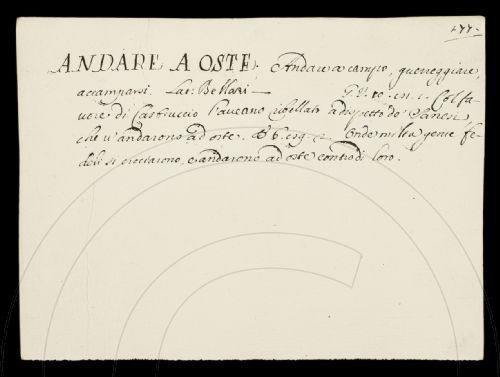 477.
ANDARE A OSTE. Andare a campo, guerreggiare,
accamparsi. Lat: Bellari — G. V. 10. 151. 1. Col fa-
vore di Castruccio l'aveano ribellato a dispetto de' Sanesi,
che v'andarono ad oste. E Onde molta gente fe-
deli si crociarono, e andarono ad oste contro di loro.